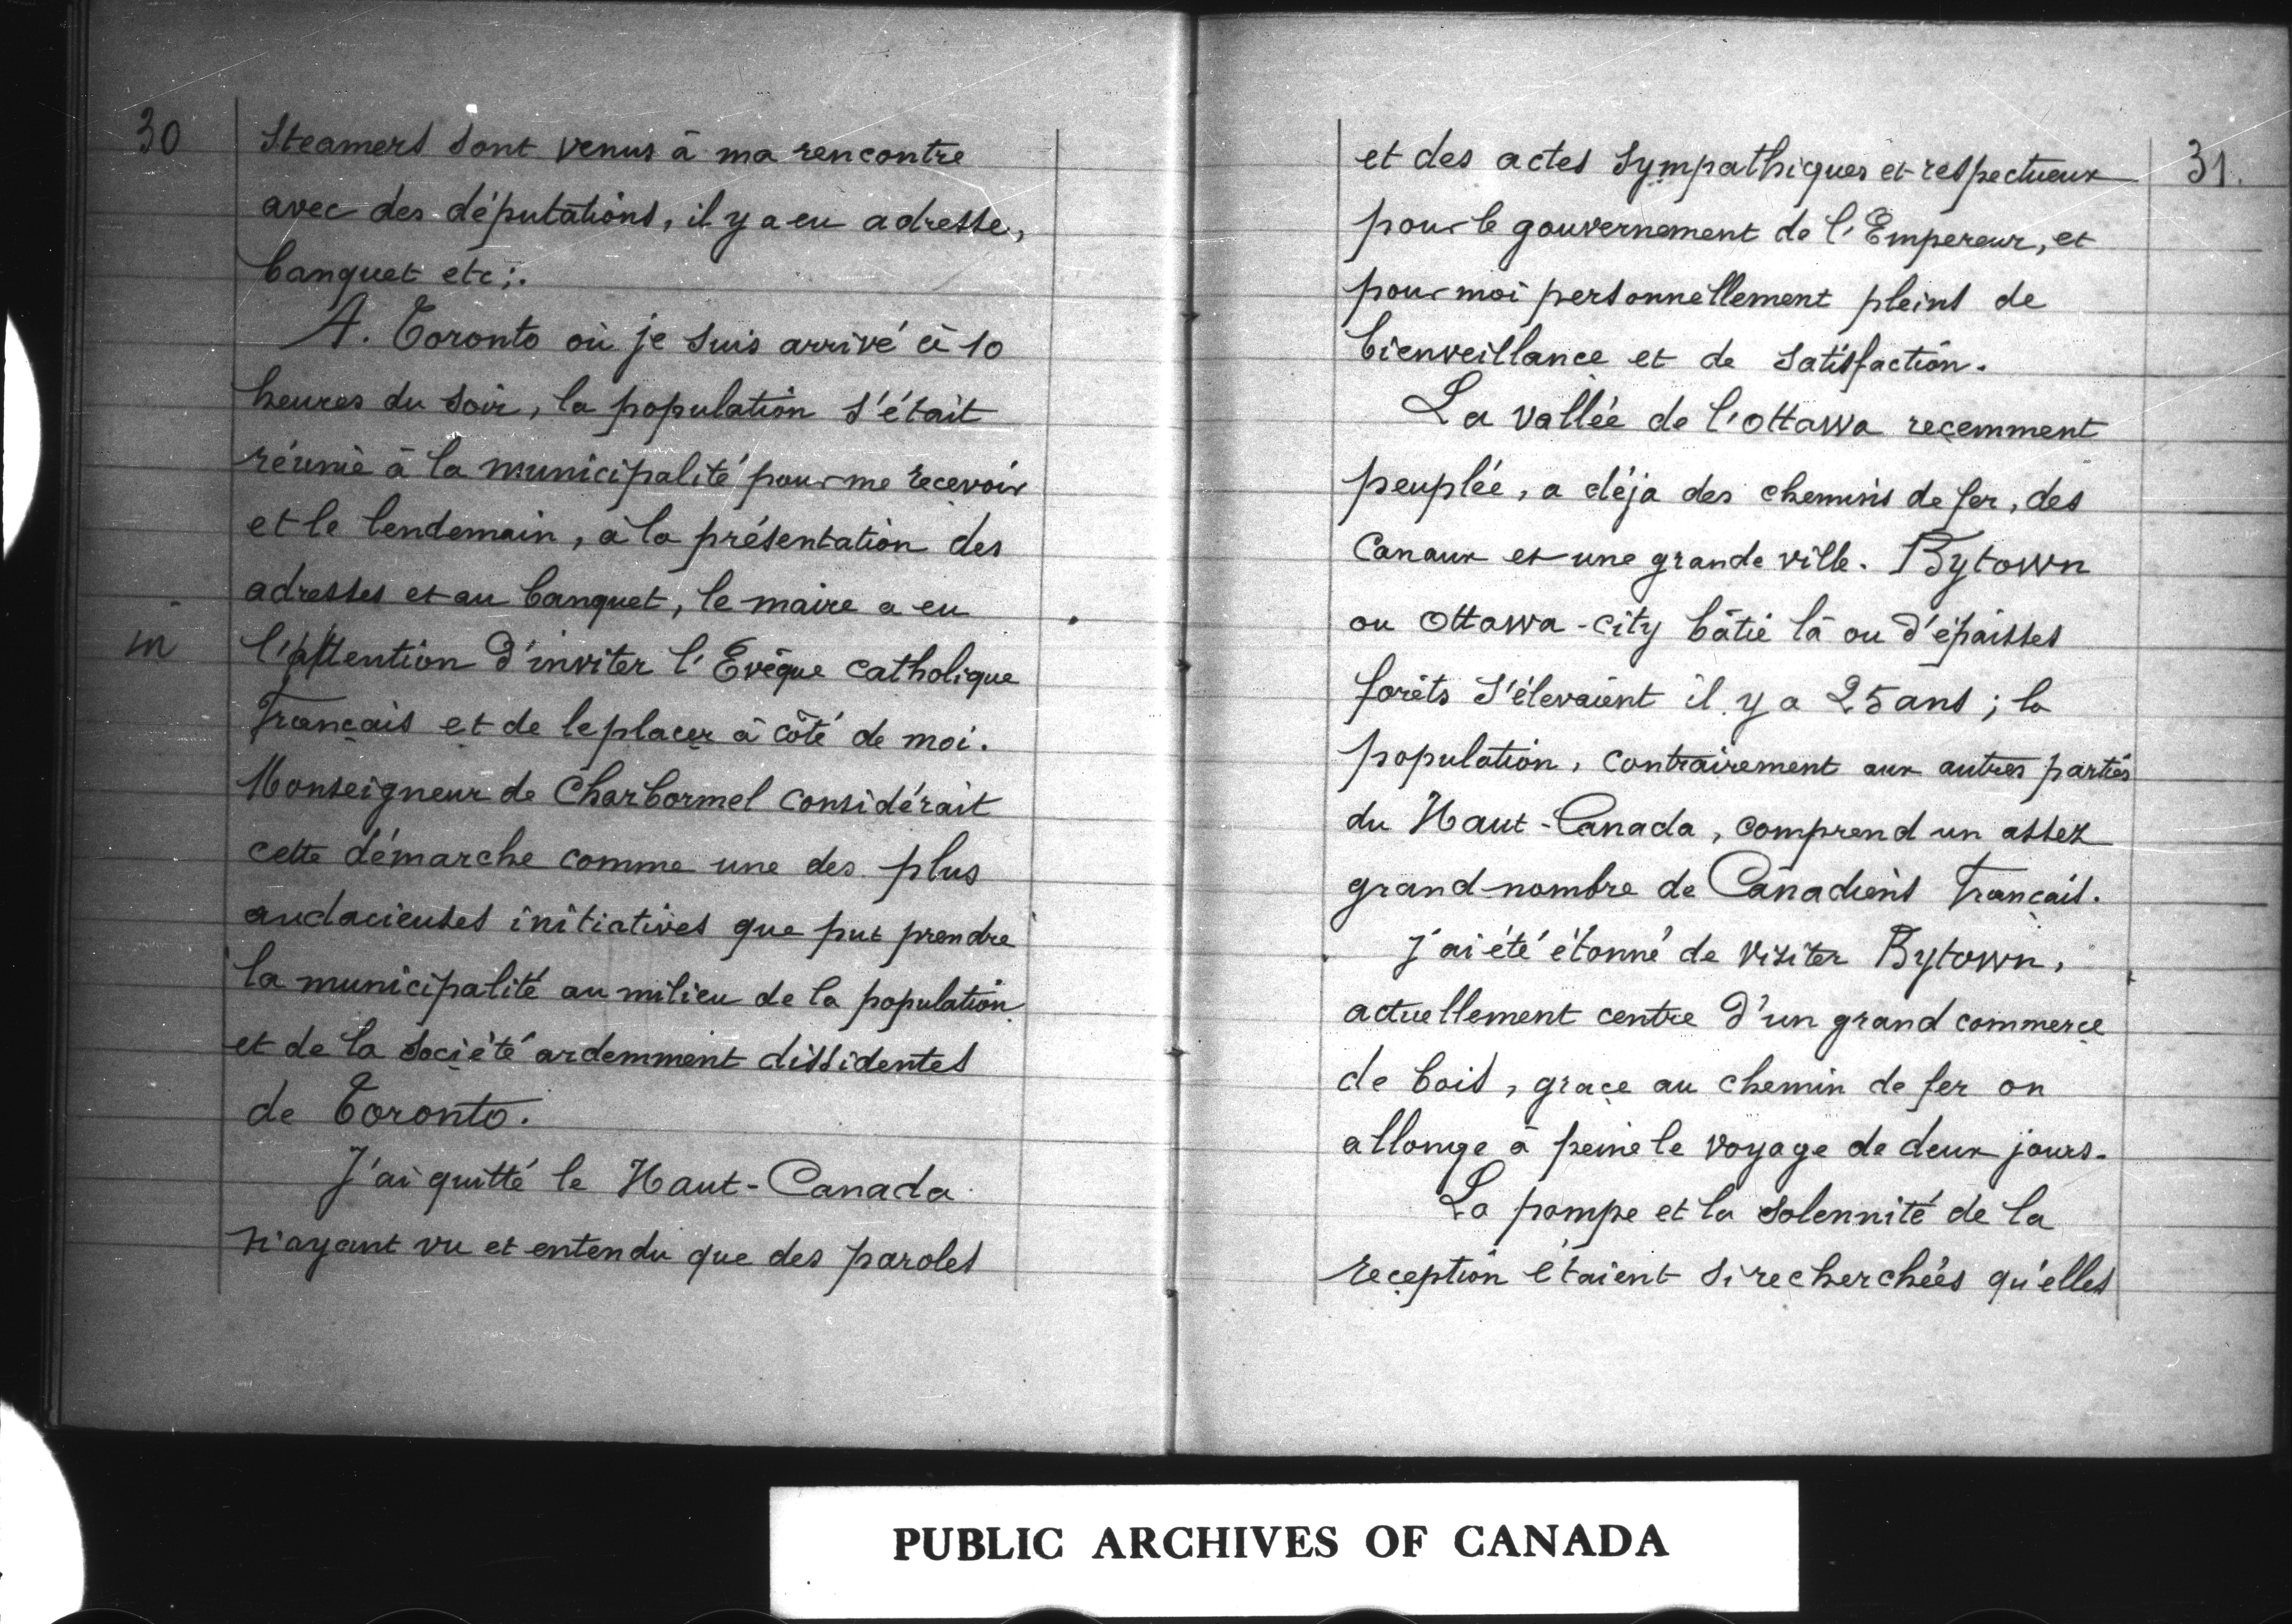 30
Steamers sont venus à ma rencontre
avec des députations, il y a eu adresse,
banquet etc;.
A. Toronto où je suis arrivé à 10
heures du soir, la population s'était
réunie à la municipalité pour me recevoir
et le lendemain, à la présentation des
adresses et au banquet, le maire a eu
in
l'attention d'inviter l'Evêque catholique
Français et de le placer à côté de moi.
Monseigneur de Charbormel considérait
cette démarche comme une des plus
audacieuses initiatives que put prendre
la municipalité au milieu de la population
et de la société ardemment dissidentes
de Toronto.
J'ai quitté le Haut-Canada
n'ayant vu et entendu que des paroles
31.
et des actes sympathiques et respectueux
pour le gouvernement de l'Empereur, et
pour moi personnellement pleins de
bienveillance et de satisfaction.
La vallée de l'ottawa recemment
peuplée, a déja des chemins de fer, des
Canaux et une grande ville. Bytown
ou Ottawa-city bâtie là ou d'épaisses
forêts s'élevaient il y a 25 ans ; la
population, contrairement aux autres parties
du Haut-Canada, comprend un assez
grand nombre de Canadiens Francais.
J'ai été étonné de visiter Bytown,
actuellement centre d'un grand commerce
de bois, grace au chemin de fer on
allonge à peine le voyage de deux jours.
La pompe et la solennité de la
reception étaient si recherchées qu'elles
PUBLIC ARCHIVES OF CANADA